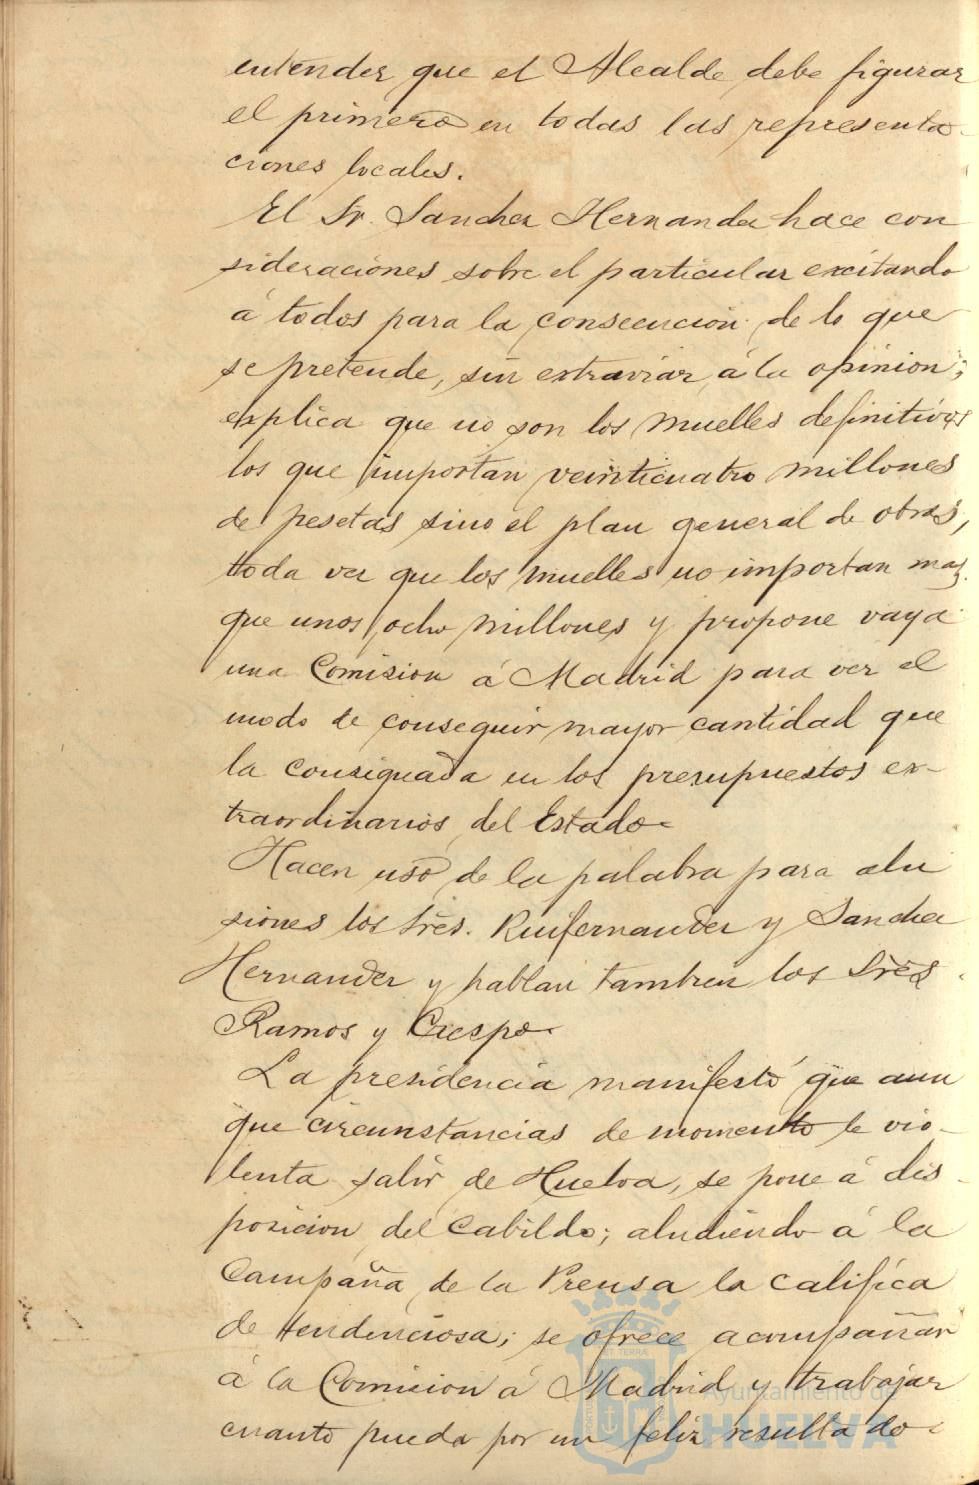 entender que el Alcalde debe figurar
el primero en todas las representa-
ciones locales.
El Sr. Sanchez Hernandez hace con
sideraciones sobre el particular excitando
á todos para la consecucion de lo que
se pretende, sin extraviar á la opinion;
explica que no son los muelles definitivos
los que importan veinticuatro millones
de pesetas sino el plan general de obras,
toda vez que los muelles no importan mas
que unos ocho millones y propone vaya
una Comision á Madrid para ver el
modo de conseguir mayor cantidad que
la consignada en los presupuestos ex-
traordinarios del Estado.
Hacen uso de la palabra para alu
siones los Sres. Ruifernandez y Sanchez
Hernandez y hablan tambien los Sres.
Ramos y Crespo.
La presidencia manifestó que aun
que circunstancias de momento le vio-
lenta salir de Huelva, se pone á dis-
posicion del Cabildo; aludiendo á la
Campaña de la Prensa la califica
de tendenciosa; se ofrece acompañar
á la Comision á Madrid y trabajar
cuanto pueda por un feliz resultado.
Ayuntamiento de
HUELVA